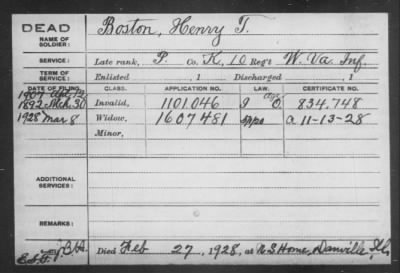 DEAD
NAME OF SOLDIER:
Boston, Henry T.
SERVICE:
Late rank, P. Co. K, 10 Reg't W. Va. Inf.
TERM OF SERVICE:
Enlisted , 1 Discharged , 1
DATE OF FILING. CLASS. APPLICATION NO. LAW. CERTIFICATE NO.
1907 Apl 12
1892 Mch 30 Invalid, 1101,046 O 834,748
1928 Mar 8 Widow, 1607481 a 11-13-28
Minor,
ADDITIONAL SERVICES:
REMARKS:
Died Feb 27, 1928, at N.S. Home, Danville, Ill.